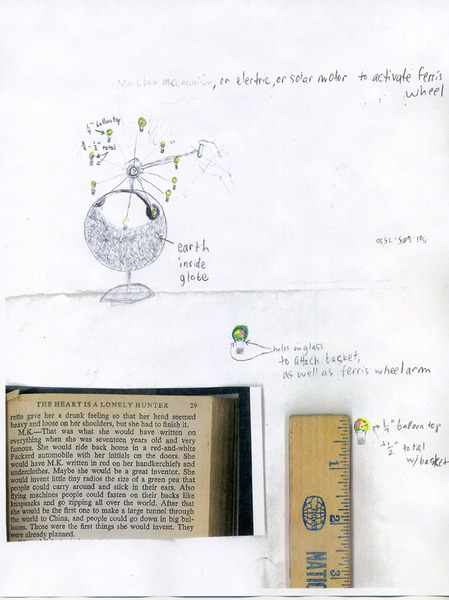 musicbox mechanism, or electric, or solar motor to activate ferris
wheel
1/4" balloon top
total
earth
inside
globe
holes in glass
to attach basket,
as well as ferris wheel arm
THE HEART IS A LONELY HUNTER 29
rette gave her a drunk feeling so that her head seemed
heavy and loose on her shoulders, but she had to finish it.
M.K.—That was what she would have written on
everything when she was seventeen years old and very
famous. She would ride back home in a red-and-white
Packard automobile with her initials on the doors. She
would have M.K. written in red on her handkerchiefs and
underclothes. Maybe she would be a great inventor. She
would invent little tiny radios the size of a green pea that
people could carry around and stick in their ears. Also
flying machines people could fasten on their backs like
knapsacks and go zipping all over the world. After that
she would be the first one to make a large tunnel through
the world to China, and people could go down in big bal-
loons. Those were the first things she would invent. They
were already planned.
1/4" balloon top
1/2"
total
w/basket
1
2
3
NATIO